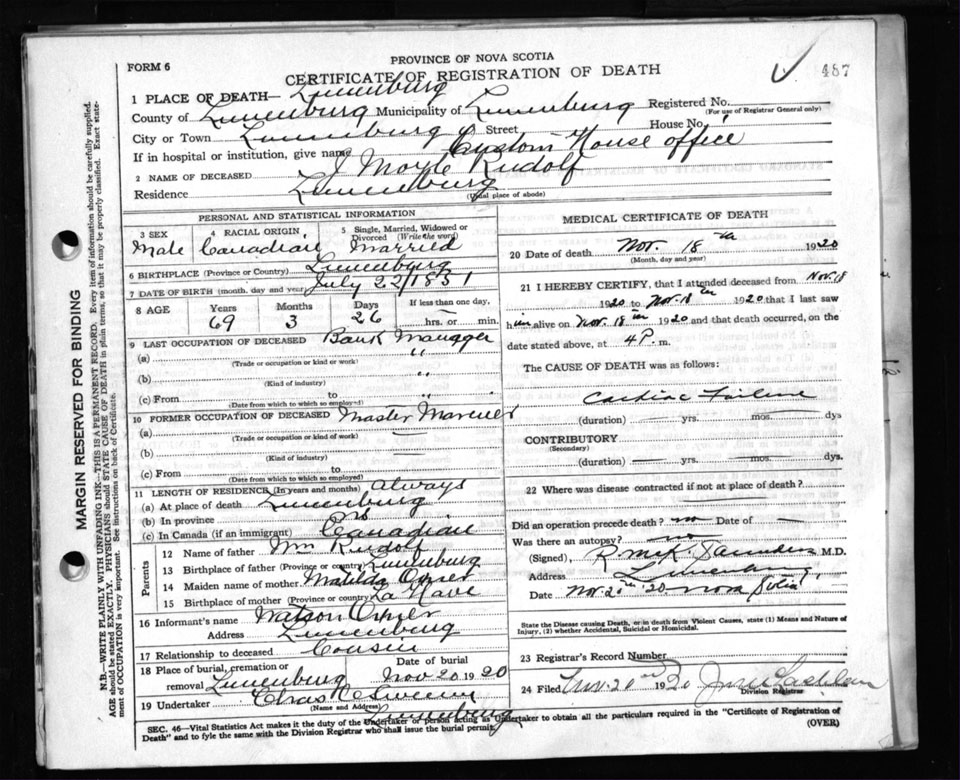 PROVINCE OF NOVA SCOTIA
FORM 6
CERTIFICATE OF REGISTRATION OF DEATH
487
1 PLACE OF DEATH— Lunenburg
County of Lunenburg Municipality of Lunenburg Registered No.
(For use of Registrar General only)
City or Town Lunenburg Street House No.
If in hospital or institution, give name Custom House office
2 NAME OF DECEASED J Moyle Rudolf
Residence Lunenburg
(Usual place of abode)
PERSONAL AND STATISTICAL INFORMATION
3 SEX 4 RACIAL ORIGIN 5 Single, Married, Widowed or Divorced (Write the word)
Male Canadian Married
6 BIRTHPLACE (Province or Country) Lunenburg
7 DATE OF BIRTH (month, day and year) July 22/1851
8 AGE Years Months Days If less than one day,
69 3 26 hrs. or min.
9 LAST OCCUPATION OF DECEASED Bank Manager
(a) "
(Trade or occupation or kind of work)
(b) "
(Kind of industry)
(c) From to "
(Date from which to which so employed)
10 FORMER OCCUPATION OF DECEASED Master Mariner
(a) —
(Trade or occupation or kind of work)
(b) —
(Kind of industry)
(c) From to
(Date from which to which so employed)
11 LENGTH OF RESIDENCE (In years and months) Always
(a) At place of death Lunenburg
(b) In province
(c) In Canada (if an immigrant) Canadian
Parents
12 Name of father Wm Rudolf
13 Birthplace of father (Province or country) Lunenburg
14 Maiden name of mother Matilda Oxner
15 Birthplace of mother (Province or country) La Have
16 Informant's name Watson Oxner
Address Lunenburg
17 Relationship to deceased Cousin
18 Place of burial, cremation or removal Lunenburg Date of burial Nov 20 1920
19 Undertaker Chas
(Name and Address)
Lunenburg
MEDICAL CERTIFICATE OF DEATH
20 Date of death Nov. 18th 1920
(Month, day and year)
21 I HEREBY CERTIFY, that I attended deceased from Nov. 18
1920 to Nov. 18th 1920 that I last saw
him alive on Nov. 18th 1920 and that death occurred, on the
date stated above, at 4 P. m.
The CAUSE OF DEATH was as follows:
Cardiac Failure
(duration) yrs. mos. dys
CONTRIBUTORY
(Secondary)
(duration) — yrs. — mos. — dys.
22 Where was disease contracted if not at place of death?
Did an operation precede death? no Date of —
Was there an autopsy? no
(Signed), R. McK. Saunders M.D.
Address Lunenburg,
Date Nov. 20th '20 Nova Scotia
State the Disease causing Death, or in death from Violent Causes, state (1) Means and Nature of
Injury, (2) whether Accidental, Suicidal or Homicidal.
23 Registrar's Record Number
24 Filed Nov. 20th 1920
Division Registrar
SEC. 46—Vital Statistics Act makes it the duty of the Undertaker or person acting as Undertaker to obtain all the particulars required in the "Certificate of Registration of
Death" and to fyle the same with the Division Registrar who shall issue the burial permit.
(OVER)
MARGIN RESERVED FOR BINDING
N.B.—WRITE PLAINLY WITH UNFADING INK—THIS IS A PERMANENT RECORD. Every item of information should be carefully supplied.
AGE should be stated EXACTLY. PHYSICIANS should STATE CAUSE OF DEATH in plain terms, so that it may be properly classified. Exact statement
of OCCUPATION is very important. See instructions on back of Certificate.